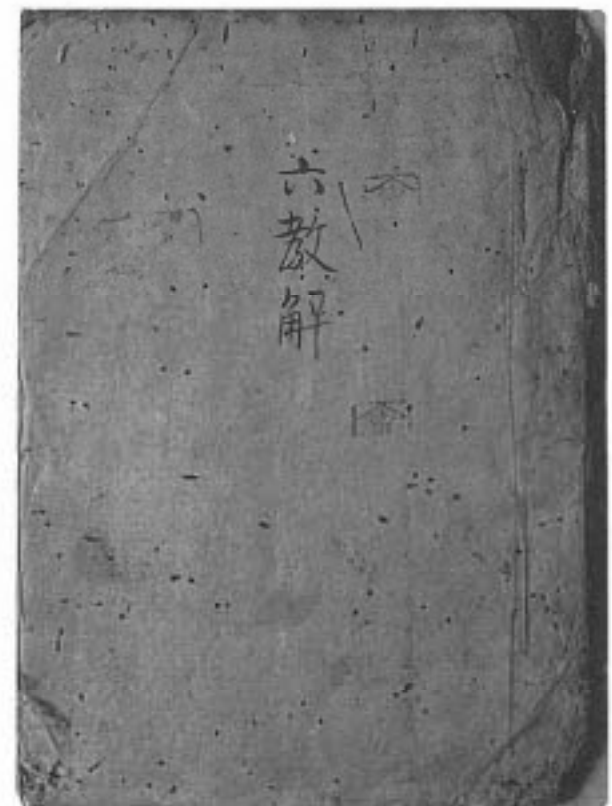 六教解